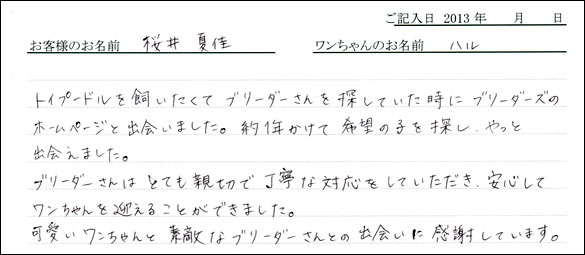 ご記入日 2013年 月 日
お客様のお名前 桜井 夏佳 ワンちゃんのお名前 ハル
トイプードルを飼いたくてブリーダーさんを探していた時にブリーダーズの
ホームページと出会いました。約1年かけて希望の子を探し、やっと
出会えました。
ブリーダーさんはとても親切で丁寧な対応をしていただき、安心して
ワンちゃんを迎えることができました。
可愛いワンちゃんと素敵なブリーダーさんとの出会いに感謝しています。